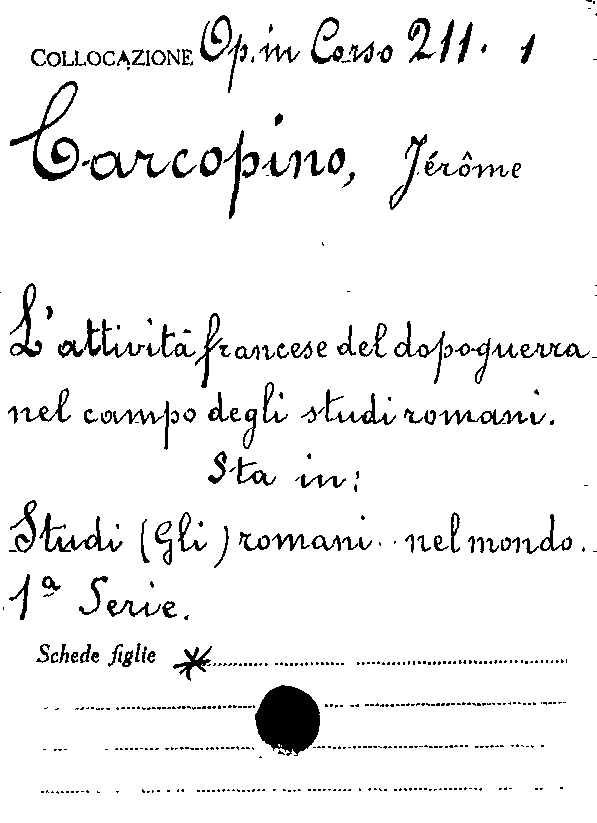 COLLOCAZIONE Op. in Corso 211. 1
Carcopino, Jérôme
L'attività francese del dopoguerra
nel campo degli studi romani.
Sta in:
Studi (Gli) romani nel mondo.
1ª Serie.
Schede figlie *